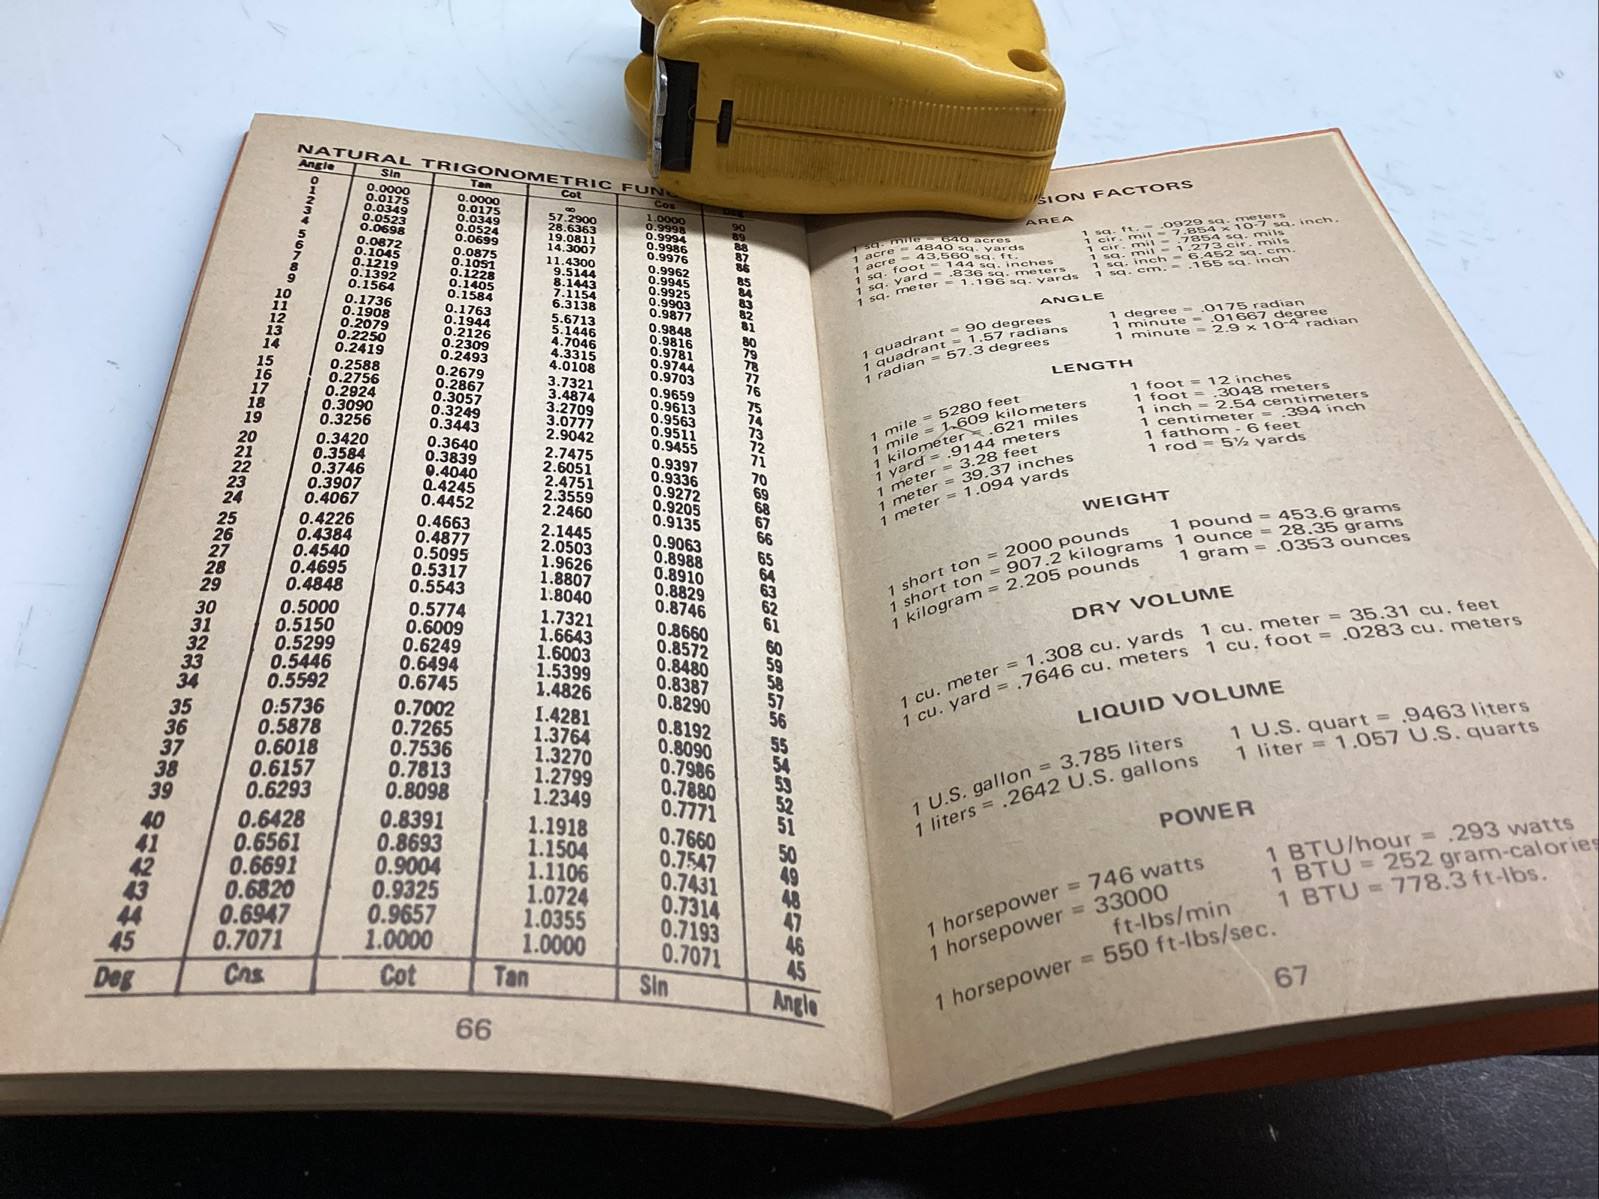 NATURAL TRIGONOMETRIC FUN
Angle Sin Tan Cot Cos Deg
0 0.0000 0.0000 ∞ 1.0000 90
1 0.0175 0.0175 57.2900 0.9998 89
2 0.0349 0.0349 28.6363 0.9994 88
3 0.0523 0.0524 19.0811 0.9986 87
4 0.0698 0.0699 14.3007 0.9976 86
5 0.0872 0.0875 11.4300 0.9962 85
6 0.1045 0.1051 9.5144 0.9945 84
7 0.1219 0.1228 8.1443 0.9925 83
8 0.1392 0.1405 7.1154 0.9903 82
9 0.1564 0.1584 6.3138 0.9877 81
10 0.1736 0.1763 5.6713 0.9848 80
11 0.1908 0.1944 5.1446 0.9816 79
12 0.2079 0.2126 4.7046 0.9781 78
13 0.2250 0.2309 4.3315 0.9744 77
14 0.2419 0.2493 4.0108 0.9703 76
15 0.2588 0.2679 3.7321 0.9659 75
16 0.2756 0.2867 3.4874 0.9613 74
17 0.2924 0.3057 3.2709 0.9563 73
18 0.3090 0.3249 3.0777 0.9511 72
19 0.3256 0.3443 2.9042 0.9455 71
20 0.3420 0.3640 2.7475 0.9397 70
21 0.3584 0.3839 2.6051 0.9336 69
22 0.3746 0.4040 2.4751 0.9272 68
23 0.3907 0.4245 2.3559 0.9205 67
24 0.4067 0.4452 2.2460 0.9135 66
25 0.4226 0.4663 2.1445 0.9063 65
26 0.4384 0.4877 2.0503 0.8988 64
27 0.4540 0.5095 1.9626 0.8910 63
28 0.4695 0.5317 1.8807 0.8829 62
29 0.4848 0.5543 1.8040 0.8746 61
30 0.5000 0.5774 1.7321 0.8660 60
31 0.5150 0.6009 1.6643 0.8572 59
32 0.5299 0.6249 1.6003 0.8480 58
33 0.5446 0.6494 1.5399 0.8387 57
34 0.5592 0.6745 1.4826 0.8290 56
35 0.5736 0.7002 1.4281 0.8192 55
36 0.5878 0.7265 1.3764 0.8090 54
37 0.6018 0.7536 1.3270 0.7986 53
38 0.6157 0.7813 1.2799 0.7880 52
39 0.6293 0.8098 1.2349 0.7771 51
40 0.6428 0.8391 1.1918 0.7660 50
41 0.6561 0.8693 1.1504 0.7547 49
42 0.6691 0.9004 1.1106 0.7431 48
43 0.6820 0.9325 1.0724 0.7314 47
44 0.6947 0.9657 1.0355 0.7193 46
45 0.7071 1.0000 1.0000 0.7071 45
Deg Cns Cot Tan Sin Angle
66
SION FACTORS
AREA
1 sq. mile = 640 acres
1 acre = 4840 sq. yards
1 acre = 43,560 sq. ft.
1 sq. foot = 144 sq. inches
1 sq. yard = .836 sq. meters
1 sq. meter = 1.196 sq. yards
1 sq. ft. = .0929 sq. meters
1 cir. mil = 7.854 x 10-7 sq. inch.
1 cir. mil = .7854 sq. mils
1 sq. mil = 1.273 cir. mils
1 sq. inch = 6.452 sq. cm.
1 sq. cm. = .155 sq. inch
ANGLE
1 quadrant = 90 degrees
1 quadrant = 1.57 radians
1 radian = 57.3 degrees
1 degree = .0175 radian
1 minute = .01667 degree
1 minute = 2.9 x 10-4 radian
LENGTH
1 mile = 5280 feet
1 mile = 1.609 kilometers
1 kilometer = .621 miles
1 yard = .9144 meters
1 meter = 3.28 feet
1 meter = 39.37 inches
1 meter = 1.094 yards
1 foot = 12 inches
1 foot = .3048 meters
1 inch = 2.54 centimeters
1 centimeter = .394 inch
1 fathom - 6 feet
1 rod = 5½ yards
WEIGHT
1 short ton = 2000 pounds
1 short ton = 907.2 kilograms
1 kilogram = 2.205 pounds
1 pound = 453.6 grams
1 ounce = 28.35 grams
1 gram = .0353 ounces
DRY VOLUME
1 cu. meter = 1.308 cu. yards
1 cu. yard = .7646 cu. meters
1 cu. meter = 35.31 cu. feet
1 cu. foot = .0283 cu. meters
LIQUID VOLUME
1 U.S. gallon = 3.785 liters
1 liters = .2642 U.S. gallons
1 U.S. quart = .9463 liters
1 liter = 1.057 U.S. quarts
POWER
1 horsepower = 746 watts
1 horsepower = 33000
ft-lbs/min
1 horsepower = 550 ft-lbs/sec.
1 BTU/hour = .293 watts
1 BTU = 252 gram-calories
1 BTU = 778.3 ft-lbs.
67